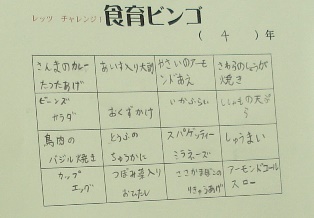 レッツ チャレンジ！ 食育ビンゴ
( 4 ) 年
さんまのカレー
たつたあげ
あいす入り大判
やさいのアーモ
ンドあえ
さわらのしょうが
焼き
ビーンズ
サラダ
おくずかけ
いかふらい
ししゃもの天ぷ
ら
鳥肉の
バジル焼き
とうふの
ちゅうかに
スパゲッティー
ミラネーズ
しゅうまい
カップ
エッグ
つぼみ菜入り
おひたし
ささかまぼこの
りきゅうあげ
アーモンドコール
スロー